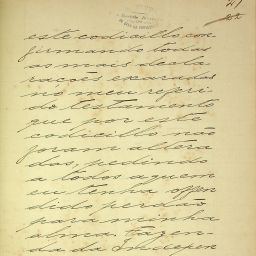 este codicillo con
firmando todas
as mais decla
rações exaradas
no meu referi
do testamento
que por este
codicillo não
foram altera
das, pedindo
a todos a quem
eu tenha offen
dido perdão
para minha
alma. Fazen
da da Indepen